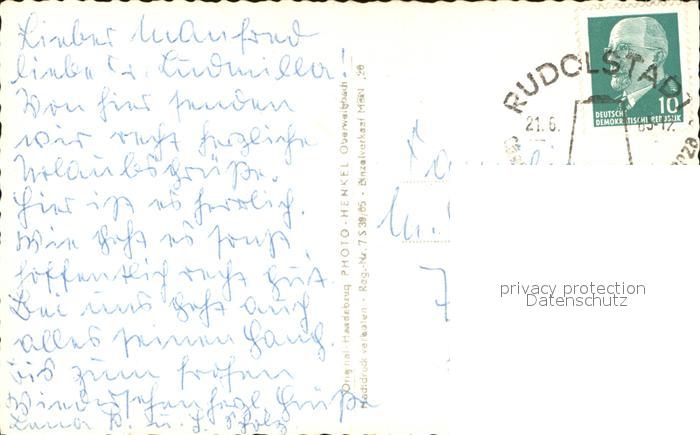 Lieber Manfred
liebe Ludmilla!
Von hier senden
wir recht herzliche
Urlaubsgrüße.
Hier ist es herrlich.
Wie geht es sonst
hoffentlich recht gut.
Bei uns geht auch
alles seinen Gang.
Bis zum frohen
Wiedersehen herzl. Grüße
u.
Original-Handabzug PHOTO-HENKEL Oberweißbach
Nachdruck verboten - Reg.-Nr. 7 S 39/65 - Einzelverkauf MDN -,20
RUDOLSTADT
21.6.
10
DEUTSCHE
DEMOKRATISCHE REPUBLIK
Familie
7
privacy protection
Datenschutz